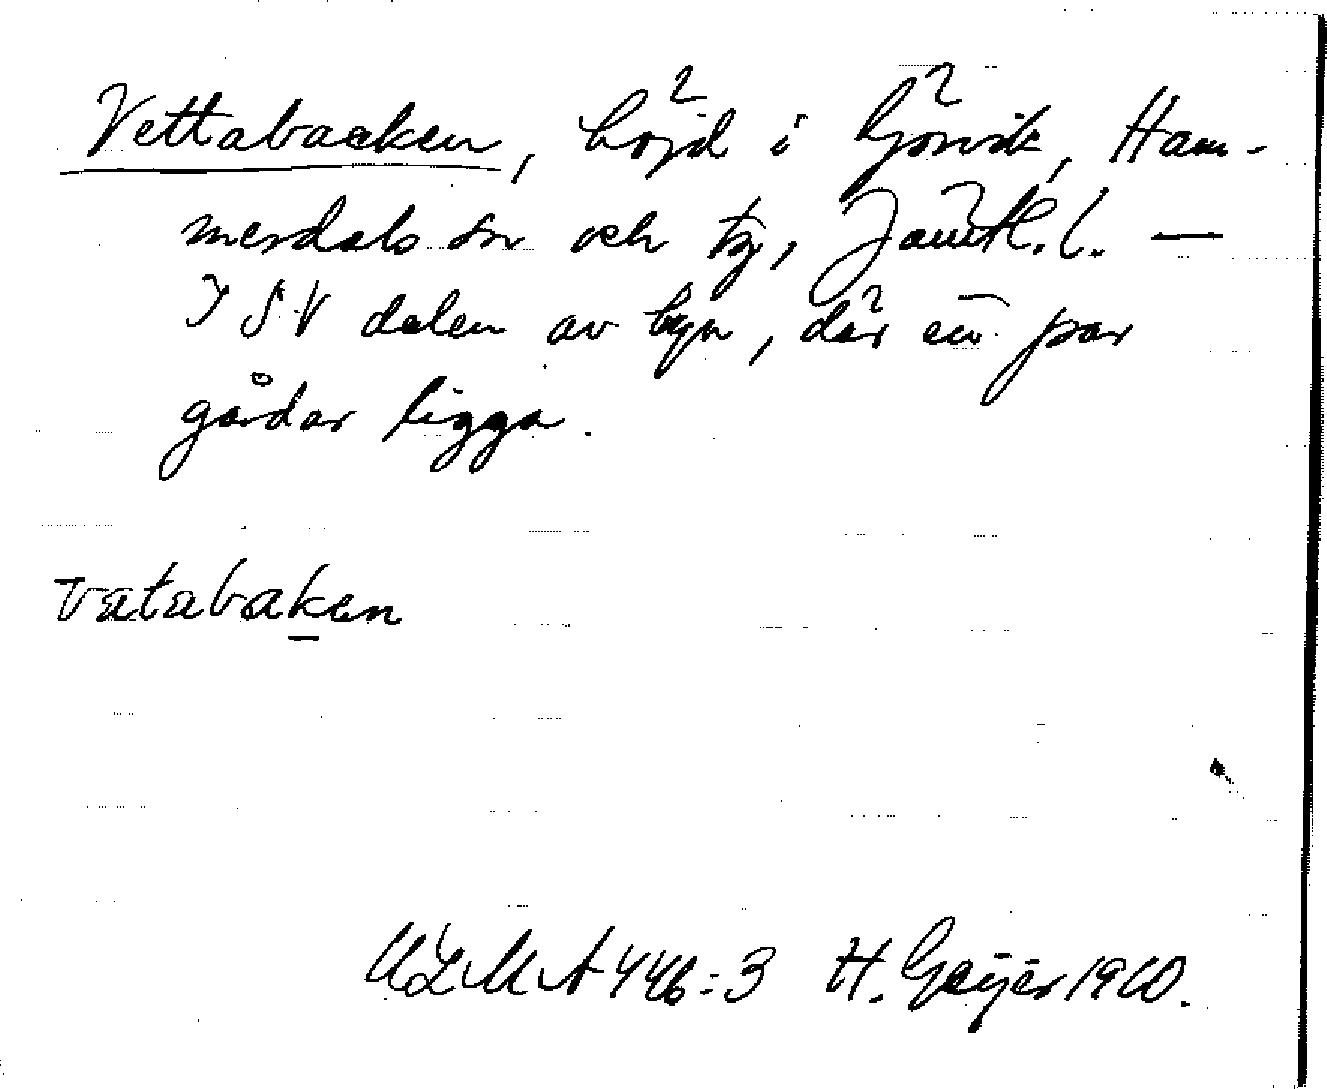 Vettabacken, höjd i Görvik, Ham-
merdals sn och tg, Jämtl. l. —
I SV delen av byn, där ett par
gårdar ligga.
vatabaken
ULMA 446:3 H. Geijer 1910.